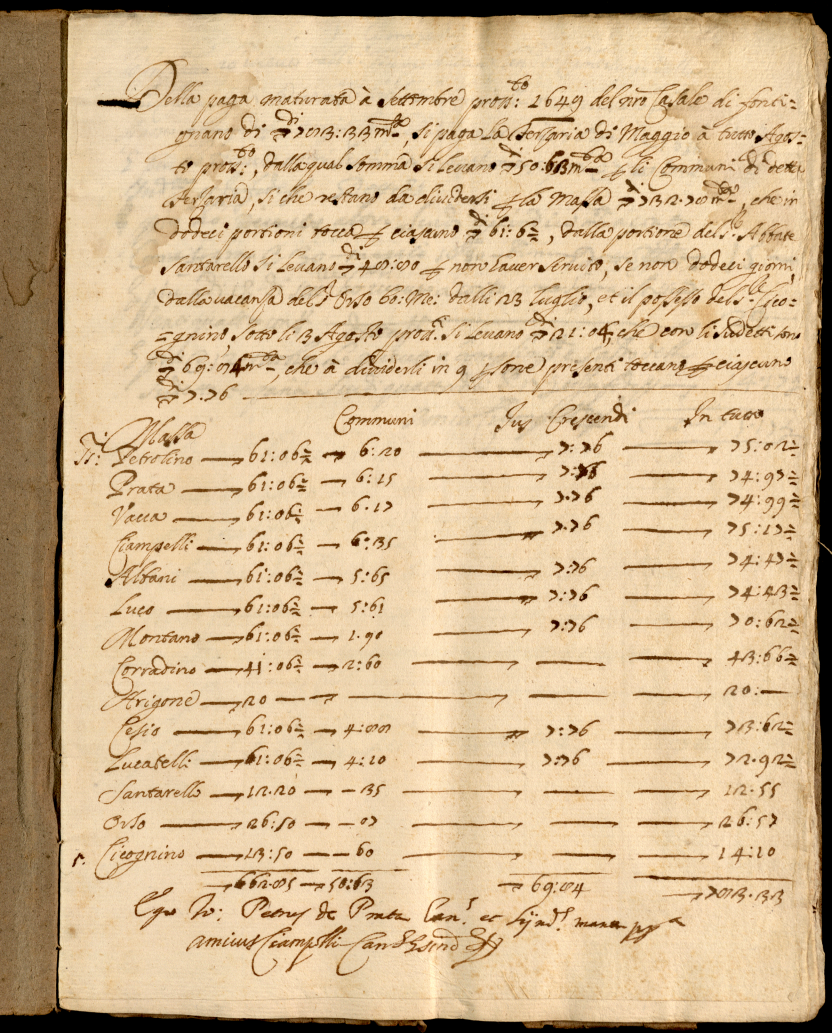 Della paga maturata à settembre pross:to 1649 del nro Casale di fonti=
gnano di ∇di 783:33 mta, si paga la Terzaria di Maggio à tutto Agos=
to pross:to, dalla qual somma si levano ∇di 50:63 mta p li Communi di detta
Terzaria, si che restano da dividersi p la Massa ∇di 732.70 mta, che in
dodeci portioni tocca p ciascuno ∇di 61:6½, dalla portione del S.r Abbate
Santarello si levano ∇di 48:80 p non haver servito, se non dodeci giorni,
dalla vacanza del S.r Orso bo: Me: dalli 23 luglio, et il possesso del S.r Cico=
=gnino, sotto li 3 Agosto prod.o si levano ∇di 21:04, che con li sudetti sono
∇di 69:84 mta, che à dividerli in 9 psone presenti toccano p ciascuno
∇di 7.76
Massa Communi Jus Crescendi In tutto
Petrolino 61:06½ 6:20 7:76 75:02½
Prata 61:06½ 6:15 7:76 74:97½
Vacca 61:06½ 6.17 7.76 74:99½
Ciampelli 61:06½ 6:35 7:76 75:17½
Altani 61:06½ 5:65 7:76 74:47½
Luco 61:06½ 5:61 7:76 74:43½
Montano 61:06½ 1.90 7:76 70:62½
Corradino 41:06½ 2:60 — 43:66½
Arigone 20 — — — 20:—
Cesio 61:06½ 4:80 7:76 73:62½
Lucatelli 61:06½ 4:10 7:76 72.92½
Santarello 12.20 — 35 — 12.55
Orso 26:50 — 07 — 26:57
Cicognino 13:50 — 60 — 14:10
662:85 50:63 69:84 783.33
Ego Jo: Petrus de Prata Can.s et Synd.s manu ppa
Amicus Ciampelli Can.s